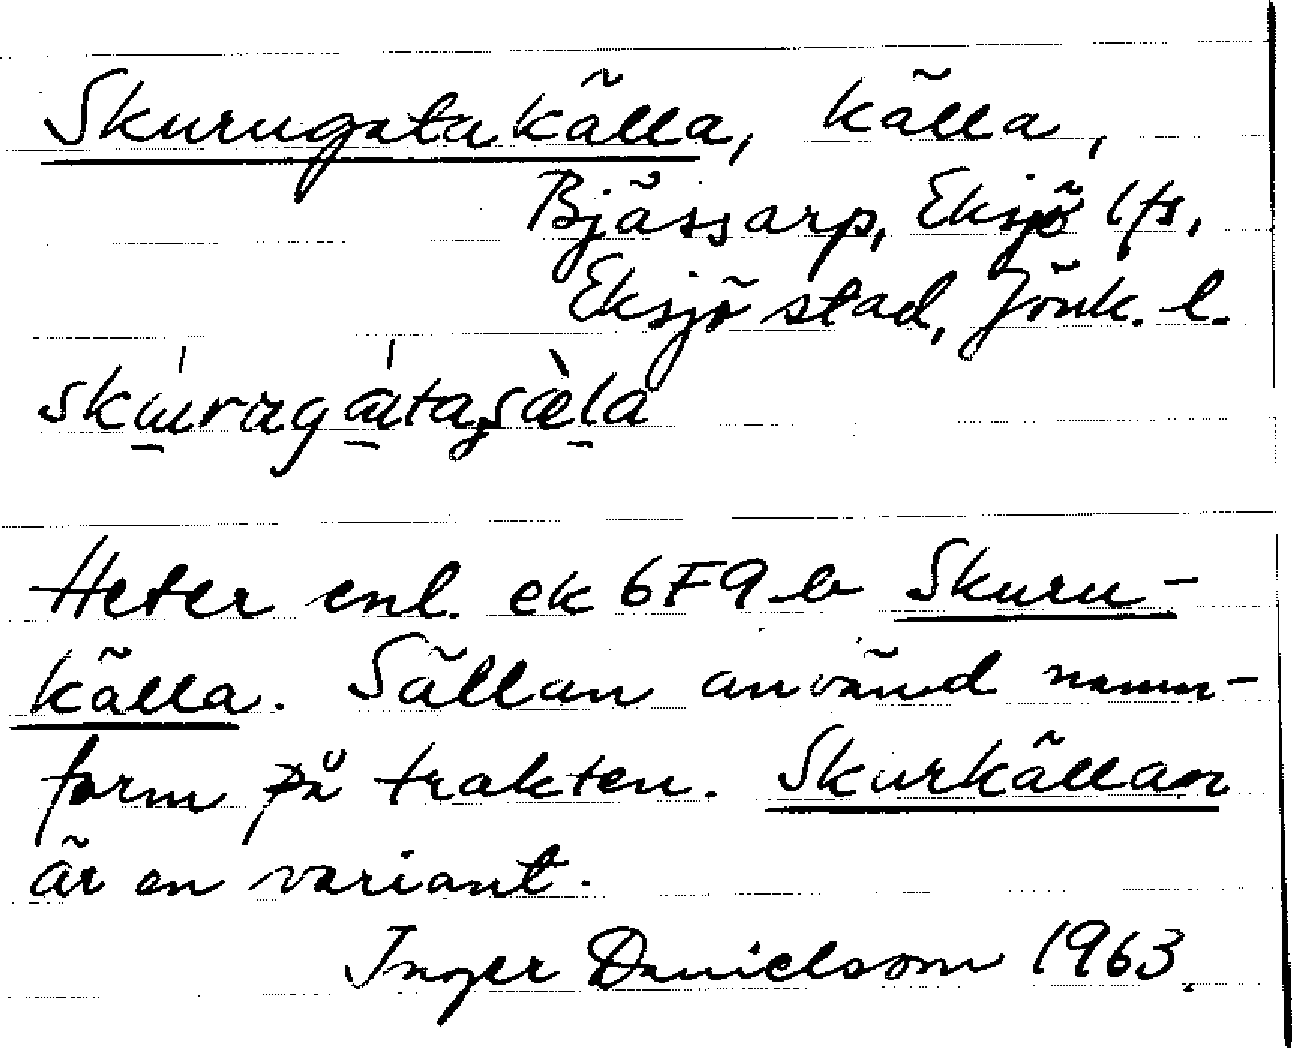 Skurugata källa, källa,
Bjässarp, Eksjö lfs,
Eksjö stad, Jönk. l.
Heter enl. ek 6F9b Skuru-
källa. Sällan använd namn-
form på trakten. Skurkällan
är en variant.
Inger Danielsson 1963.